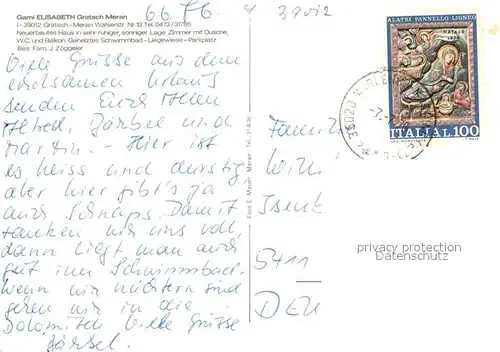 6676
39012
Garni ELISABETH Gratsch Meran
I-39012 Gratsch-Meran Walserstr. Nr. 13 Tel. 0473/31785
Neuerbautes Haus in sehr ruhiger, sonniger Lage. Zimmer mit Dusche,
W.C. und Balkon. Geheiztes Schwimmbad - Liegewiese - Parkplatz
Bes. Fam. J. Zöggeler
Viele Grüsse aus dem
erholsamen Urlaub
senden Euch Allen
Alfred, Bärbel und
Martin. - Hier ist
es heiss und durstig
aber hier gibt's ja
auch Schnaps. Damit
tanken wir uns voll,
dann liegt man auch
gut im Schwimmbad.
Wenn wir nüchtern sind
gehen wir in die
Dolomiten. Viele Grüsse
Bärbel.
Foto E. Mauer Meran Tel.
ALATRI PANNELLO LIGNEO
NATALE
ITALIA 100
39020
Familie
5411
DEU
privacy protection
Datenschutz